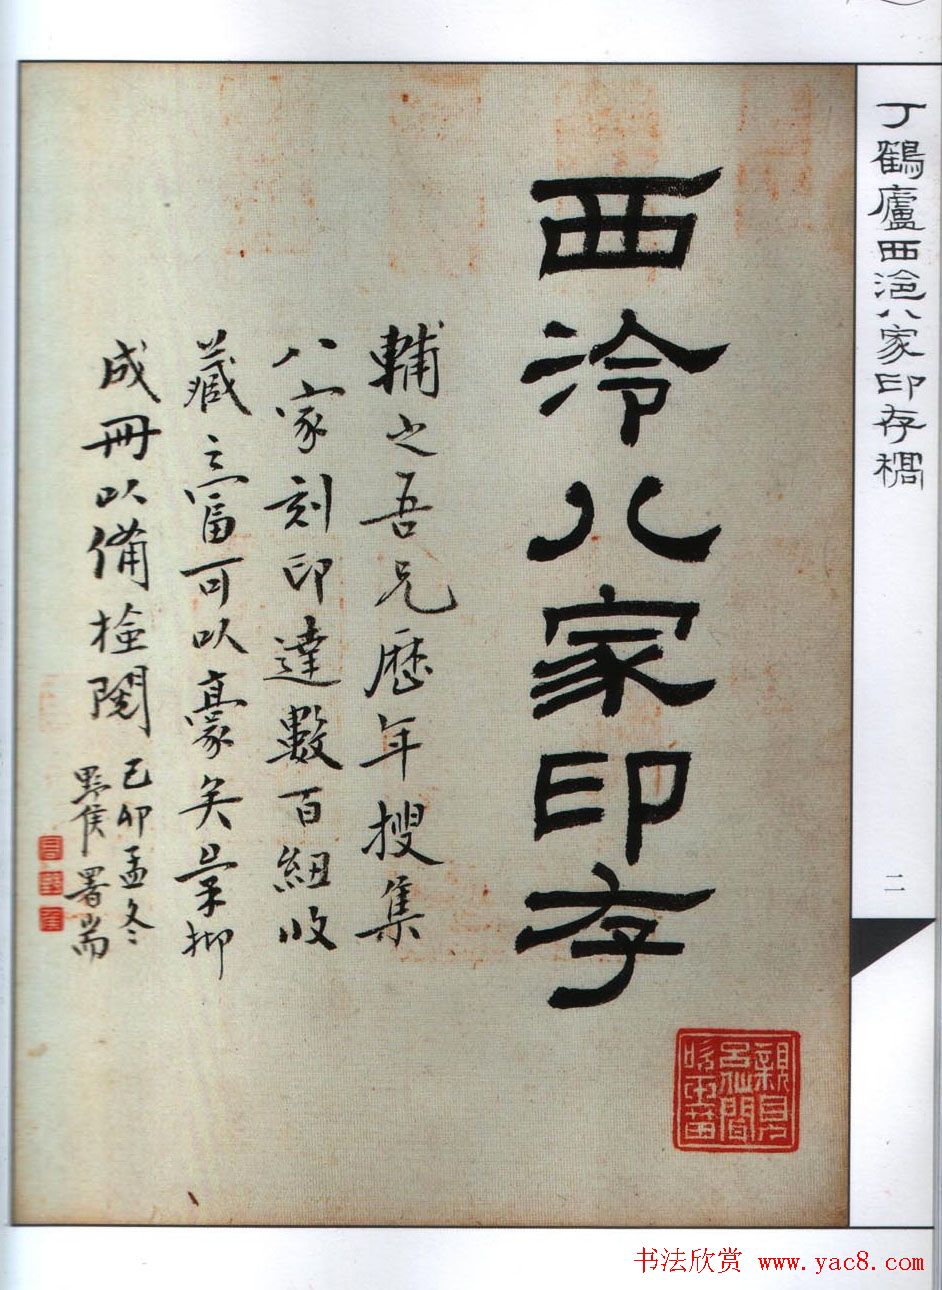 丁鶴廬西泠八家印存稿
二
西泠八家印存
輔之吾兄歷年搜集
八家刻印達數百紐收
藏之富可以豪矣
成冊以備檢閱己卯孟冬
野侯署耑
书法欣赏 www.yac8.com